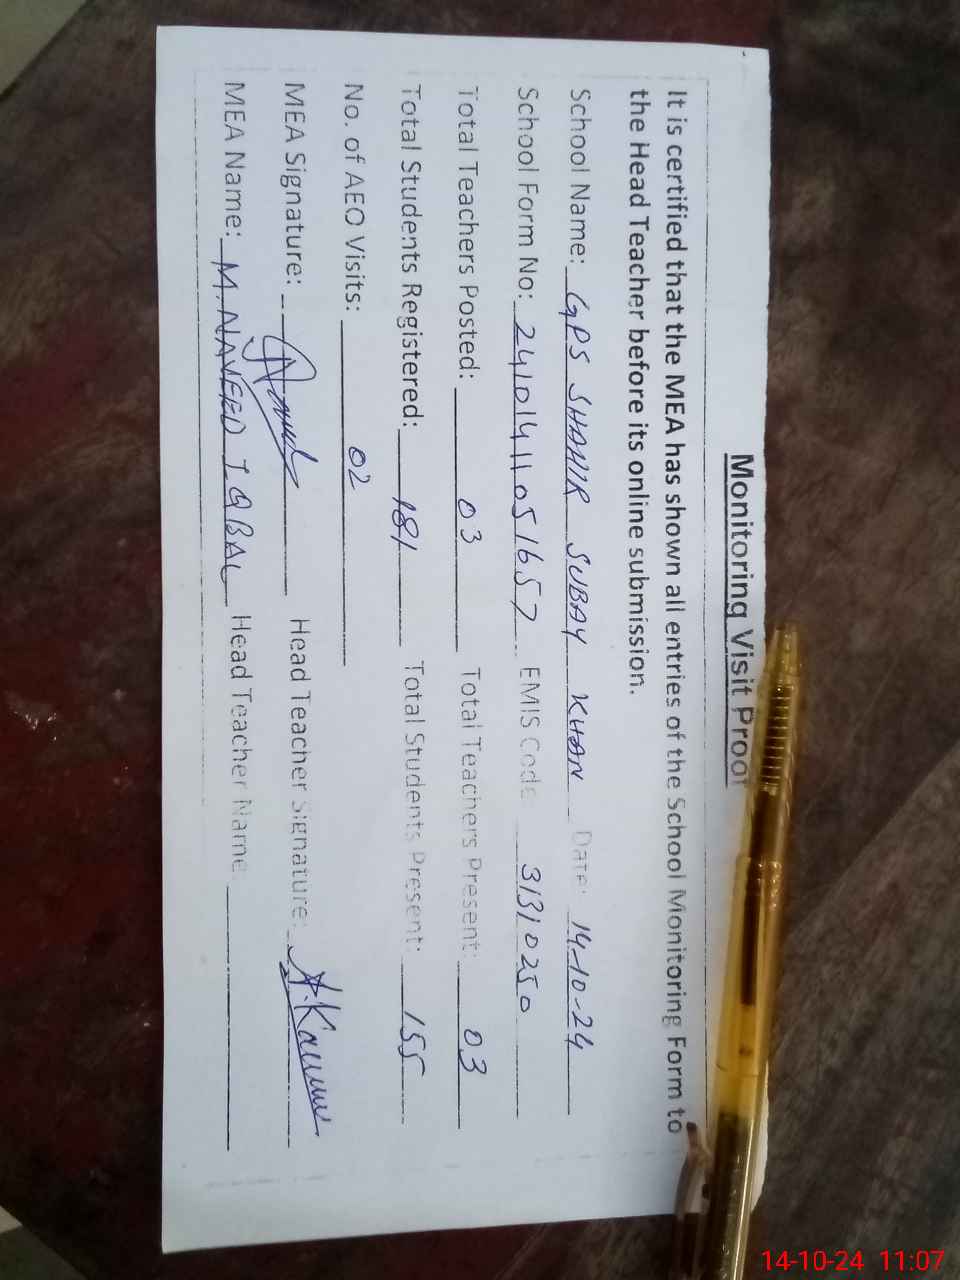 Monitoring Visit Proof
It is certified that the MEA has shown all entries of the School Monitoring Form to
the Head Teacher before its online submission.
School Name: GPS SHAHIR SUBAY KHAN Date: 14-10-24
School Form No: 24101411051657 EMIS Code 31310250
Total Teachers Posted: 03 Total Teachers Present: 03
Total Students Registered: 181 Total Students Present: 155
No. of AEO Visits: 02
MEA Signature: Head Teacher Signature:
MEA Name: M. NAVEED IQBAL Head Teacher Name:
14-10-24 11:07